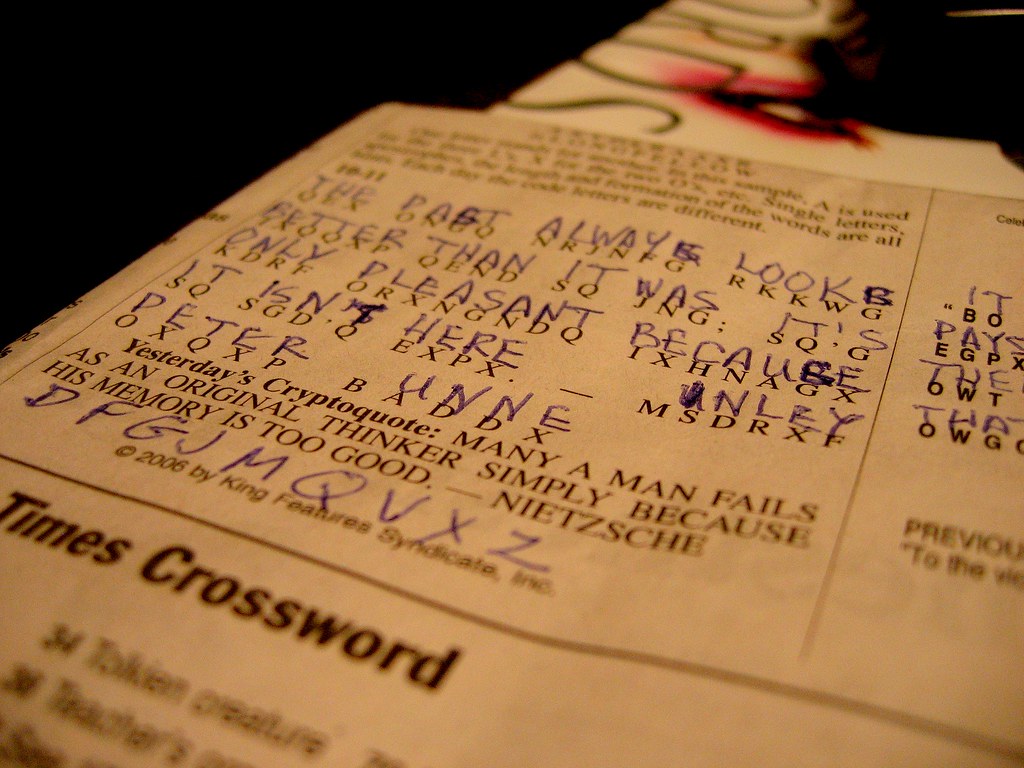 One letter stands for another. In this sample, A is used
for the three L's, X for the two O's, etc. Single letters,
apostrophes, the length and formation of the words are all
hints. Each day the code letters are different.
10-11
THE PAST ALWAYS LOOKS
QEX ONGQ NRJNFG RKKWG
BETTER THAN IT WAS; IT'S
IXQQXP QEND SQ JNG; SQ'G
ONLY PLEASANT BECAUSE
KDRF ORXNGNDQ IXHNAGX
IT ISN'T HERE
SQ SGD'Q EXPX. — MSDRXF
PETER UNNE
OXQXP BADDX
Yesterday's Cryptoquote: MANY A MAN FAILS
AS AN ORIGINAL THINKER SIMPLY BECAUSE
HIS MEMORY IS TOO GOOD. — NIETZSCHE
DFGJMQVXZ
© 2006 by King Features Syndicate, Inc.
Times Crossword
34 Tolkien creature
38 Teacher's
Celeb
IT
"BO
PAYS
EGPX
THE
OWT
THAT
OWG
PREVIOU
"To the vic